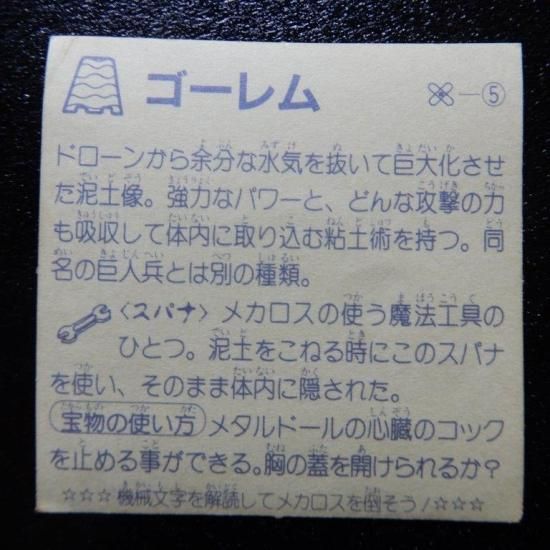 ゴーレム ー⑤
ドローンから余分な水気を抜いて巨大化させ
た泥土像。強力なパワーと、どんな攻撃の力
も吸収して体内に取り込む粘土術を持つ。同
名の巨人兵とは別の種類。
〈スパナ〉メカロスの使う魔法工具の
ひとつ。泥土をこねる時にこのスパナ
を使い、そのまま体内に隠された。
宝物の使い方 メタルドールの心臓のコック
を止める事ができる。胸の蓋を開けられるか?
☆☆☆機械文字を解読してメカロスを倒そう!☆☆☆